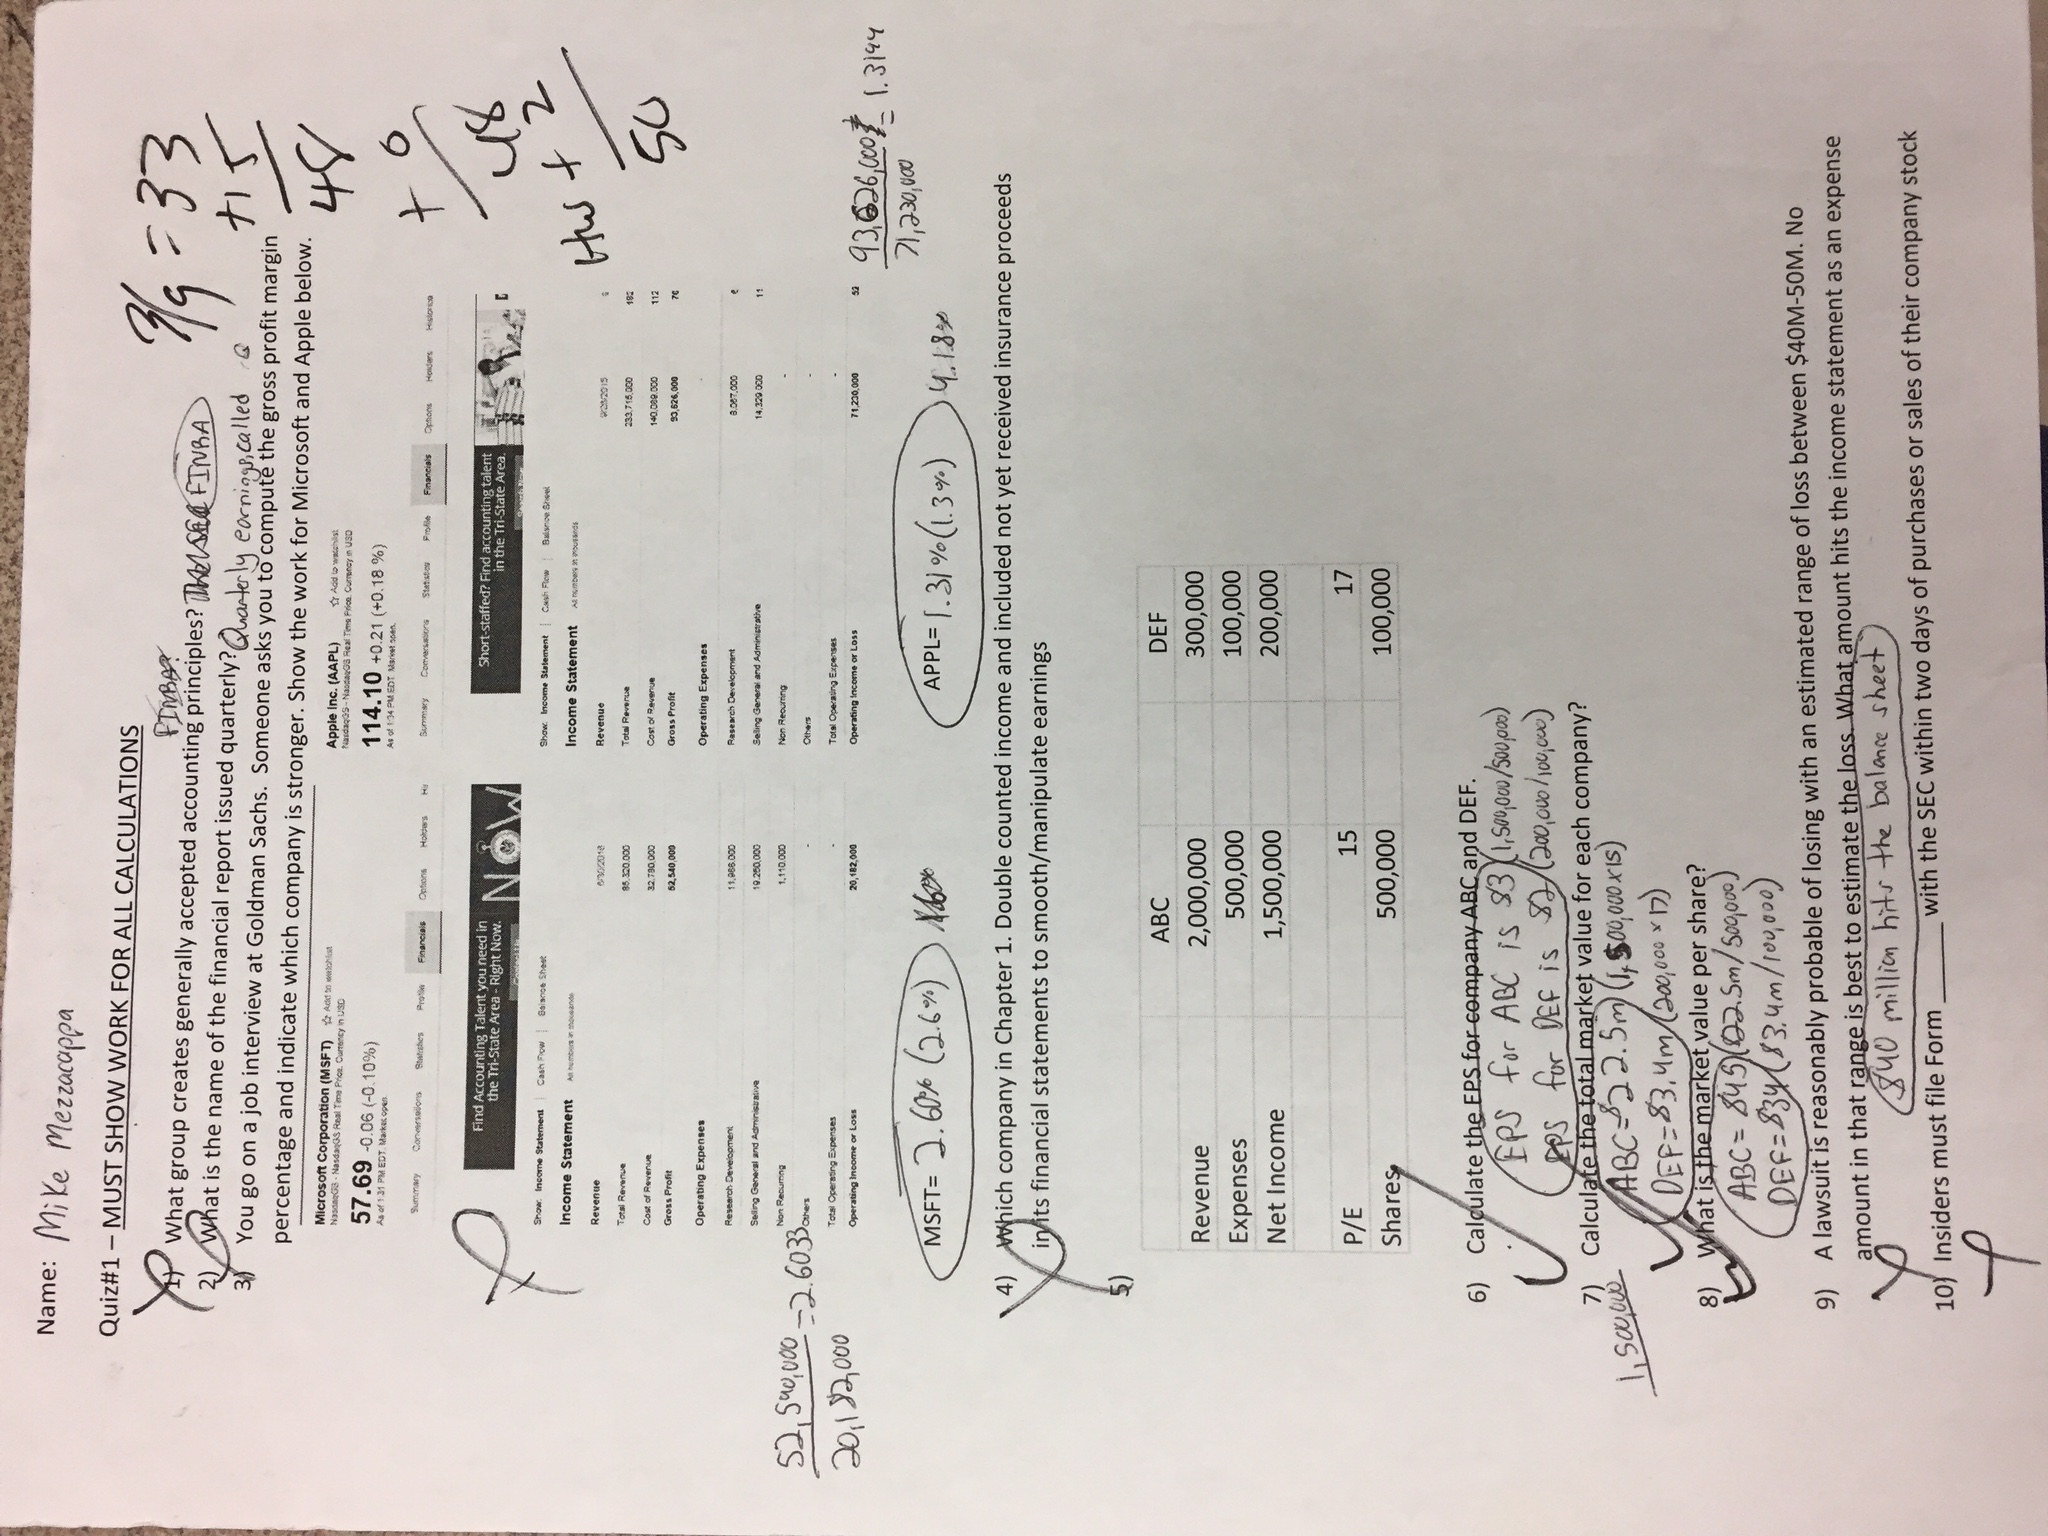 Name: Mike Mezzacappa
Quiz#1 – MUST SHOW WORK FOR ALL CALCULATIONS
3/9 = 33
+15
48
+ 0
48
HW + 2
50
FINBA?
1) What group creates generally accepted accounting principles? The SEC FINBA
2) What is the name of the financial report issued quarterly? Quarterly earnings, called Q
3) You go on a job interview at Goldman Sachs. Someone asks you to compute the gross profit margin
percentage and indicate which company is stronger. Show the work for Microsoft and Apple below.
Microsoft Corporation (MSFT) Add to watchlist
NasdaqGS - NasdaqGS Real Time Price. Currency in USD
57.69 -0.06 (-0.10%)
As of 1:31 PM EDT. Market open.
Summary Conversations Statistics Profile Financials Options Holders Hi
Find Accounting Talent you need in
the Tri-State Area - Right Now.
NOW
Show: Income Statement Cash Flow Balance Sheet
Income Statement All numbers in thousands
Revenue 6/30/2016
Total Revenue 85,320,000
Cost of Revenue 32,780,000
Gross Profit 52,540,000
Operating Expenses
Research Development 11,988,000
Selling General and Administrative 19,260,000
Non Recurring 1,110,000
Others -
Total Operating Expenses -
Operating Income or Loss 20,182,000
Apple Inc. (AAPL) Add to watchlist
NasdaqGS - NasdaqGS Real Time Price. Currency in USD
114.10 +0.21 (+0.18 %)
As of 1:34 PM EDT. Market open.
Summary Conversations Statistics Profile Financials Options Holders Historica
Short-staffed? Find accounting talent
in the Tri-State Area.
Search Now
Show: Income Statement Cash Flow Balance Sheet
Income Statement All numbers in thousands
Revenue 9/26/2015
Total Revenue 233,715,000 182
Cost of Revenue 140,089,000 112
Gross Profit 93,626,000 70
Operating Expenses
Research Development 8,067,000
Selling General and Administrative 14,329,000 11
Non Recurring -
Others -
Total Operating Expenses -
Operating Income or Loss 71,230,000 52
52,540,000
= 2.6033
20,182,000
93,626,000
= 1.3144
71,230,000
MSFT= 2.60% (2.6%)
APPL= 1.31% (1.3%) 4.18%
4) Which company in Chapter 1. Double counted income and included not yet received insurance proceeds
in its financial statements to smooth/manipulate earnings
5)
ABC DEF
Revenue 2,000,000 300,000
Expenses 500,000 100,000
Net Income 1,500,000 200,000
P/E 15 17
Shares 500,000 100,000
6) Calculate the EPS for company ABC and DEF.
EPS for ABC is $3 (1,500,000/500,000)
EPS for DEF is $2 (200,000/100,000)
7) Calculate the total market value for each company?
1,500,000
ABC=$22.5m (1,500,000x15)
DEF=$3.4m (200,000x17)
8) What is the market value per share?
ABC= $45 ($22.5m/500,000)
DEF=$34 ($3.4m/100,000)
9) A lawsuit is reasonably probable of losing with an estimated range of loss between $40M-50M. No
amount in that range is best to estimate the loss. What amount hits the income statement as an expense
$40 million hits the balance sheet
10) Insiders must file Form ______ with the SEC within two days of purchases or sales of their company stock